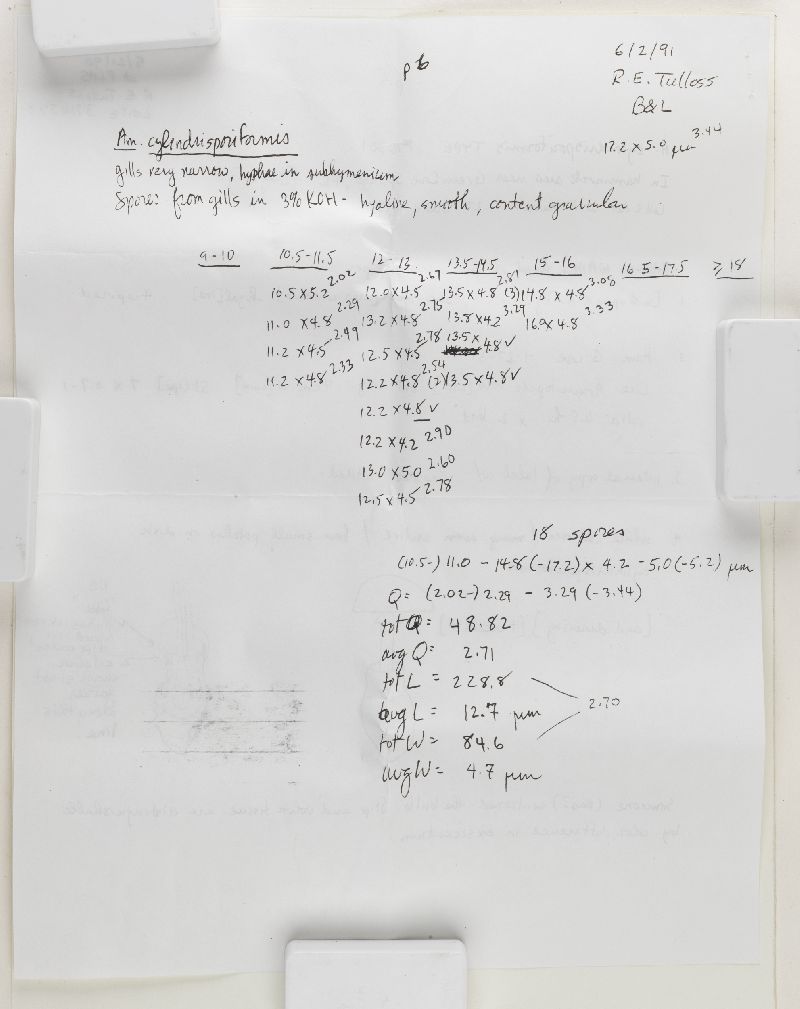 p 6
6/2/91
R.E. Tulloss
B&L
17.2 x 5.0 µm 3.44
Am. cylindrisporiformis
gills very narrow, hyphae in subhymenium
Spores from gills in 3% KOH - hyaline, smooth, content granular
9-10 10.5-11.5 12-13 13.5-14.5 15-16 16.5-17.5 ≥ 18
10.5 x 5.2 2.02 12.0 x 4.5 2.67 13.5 x 4.8 2.81 (3) 14.8 x 4.8 3.08
11.0 x 4.8 2.29 13.2 x 4.8 2.75 13.8 x 4.2 3.29 16.0 x 4.8 3.33
11.2 x 4.5 2.49 12.5 x 4.5 2.78 13.5 x 4.8 √
11.2 x 4.8 2.33 12.2 x 4.8 2.54 (2) 13.5 x 4.8 √
12.2 x 4.8 √
12.2 x 4.2 2.90
13.0 x 5.0 2.60
12.5 x 4.5 2.78
18 spores
(10.5-) 11.0 - 14.8 (-17.2) x 4.2 - 5.0 (-5.2) µm
Q = (2.02-) 2.29 - 3.29 (-3.44)
tot Q = 48.82
avg Q = 2.71
tot L = 228.8
avg L = 12.7 µm
2.70
tot W = 84.6
avg W = 4.7 µm